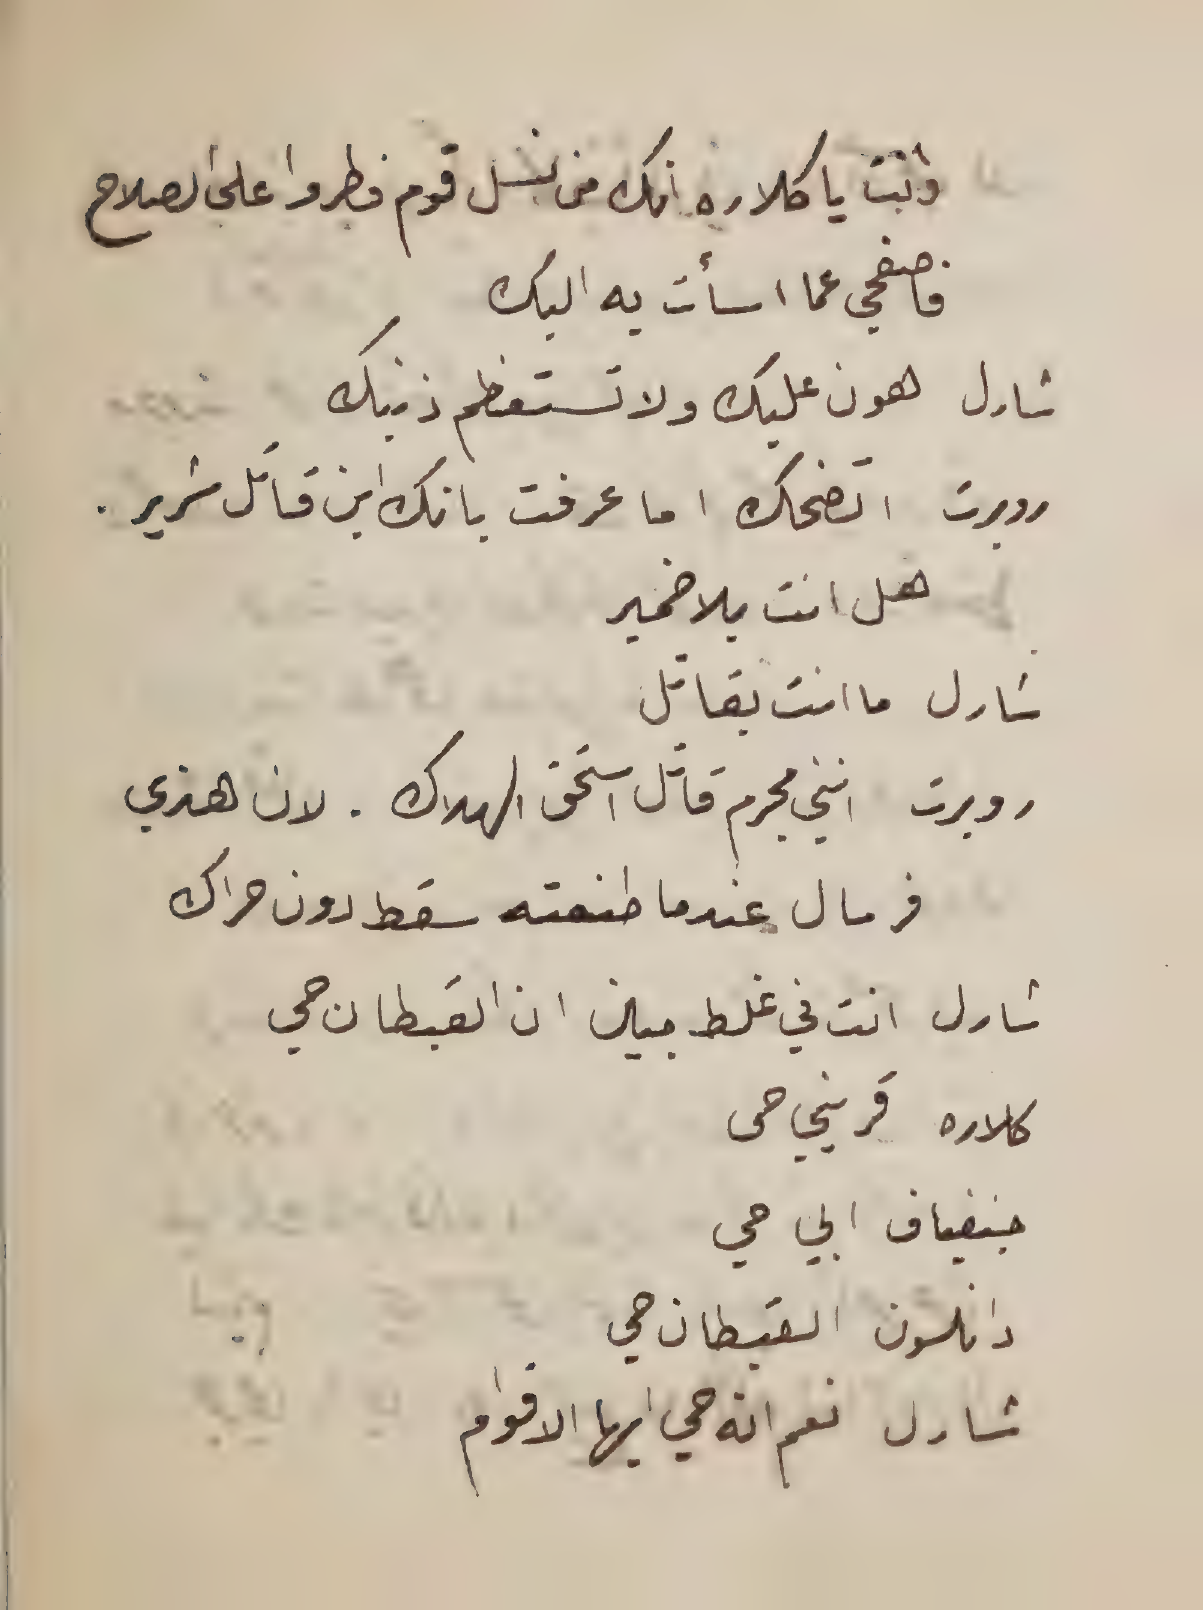 وانت يا كلاره انك من نسل قوم فطروا على الصلاح
فاصفحي عما اسأت به اليك
شارل هون عليك ولا تستعظم ذنبك
روبرت اتضحك اما عرفت بانك ابن قاتل شرير .
هل انت بلا ضمير
شارل ما انت بقاتل
روبرت انني مجرم قاتل استحق الهلاك . لان هنري
فرمال عندما طنعته سقط دون حراك
شارل انت في غلط مبين ان القبطان حي
كلاره قريني حي
جنفياف ابي حي
دانلسون القبطان حي
شارل نعم انه حي ايها الاقوام